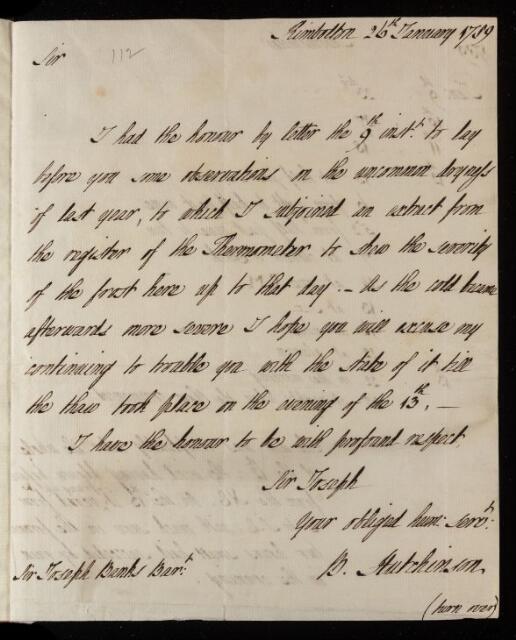 Kimbolton 26th January 1789
Sir
112
I had the honour by letter the 9th inst.t to lay
before you some observations on the uncommon dryness
of last year, to which I subjoined an extract from
the register of the Thermometer to shew the severity
of the frost here up to that day. — As the cold became
afterwards more severe I hope you will excuse my
continuing to trouble you with the state of it till
the thaw took place on the evening of the 13th. —
I have the honour to be with profound respect
Sir Joseph
Your obliged hum: Serv.t
B. Hutchinson
Sir Joseph Banks Bar.t
(turn over)